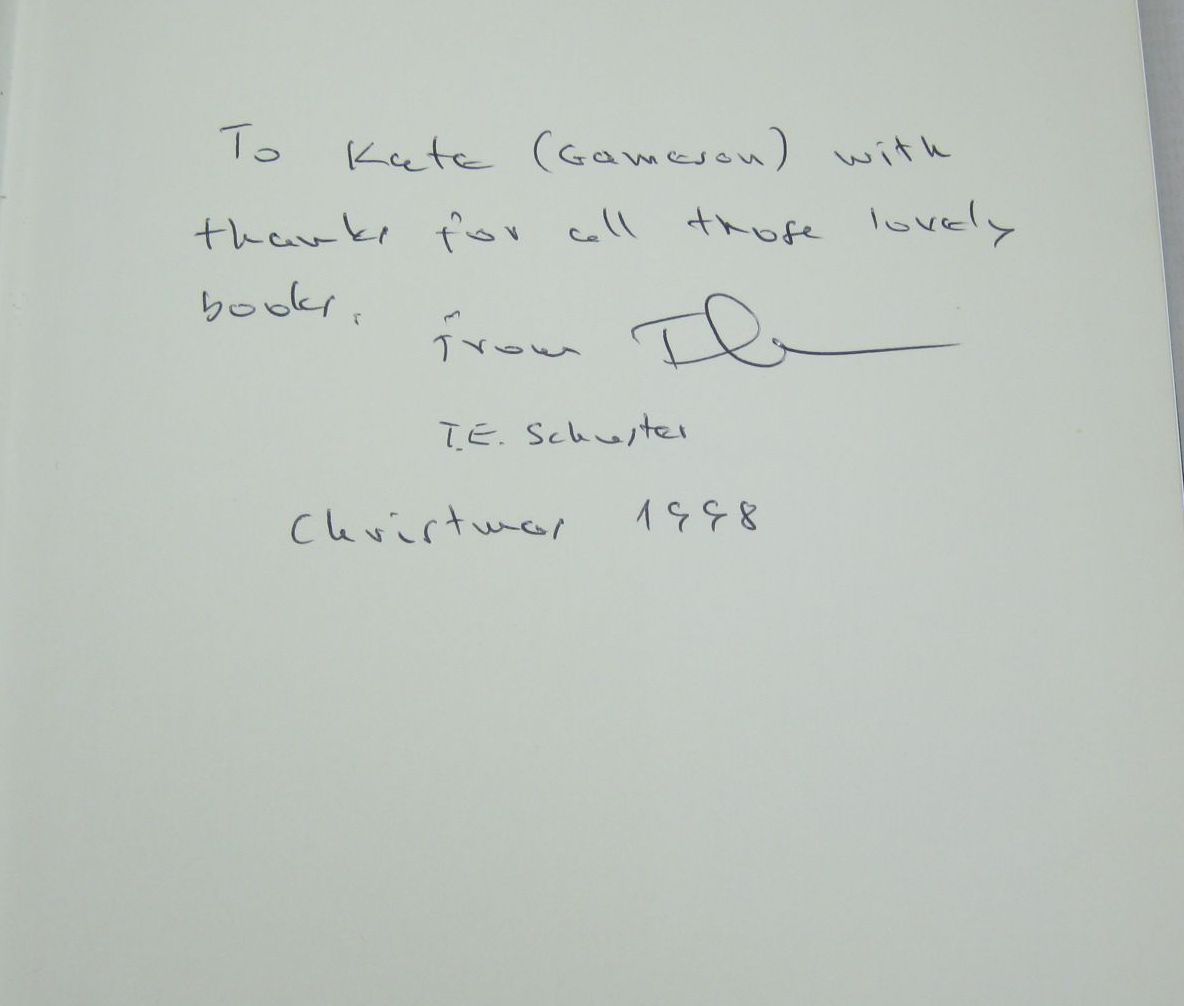 To Kate (Gameson) with
thanks for all those lovely
books.
from
T.E. Schuster
Christmas 1998